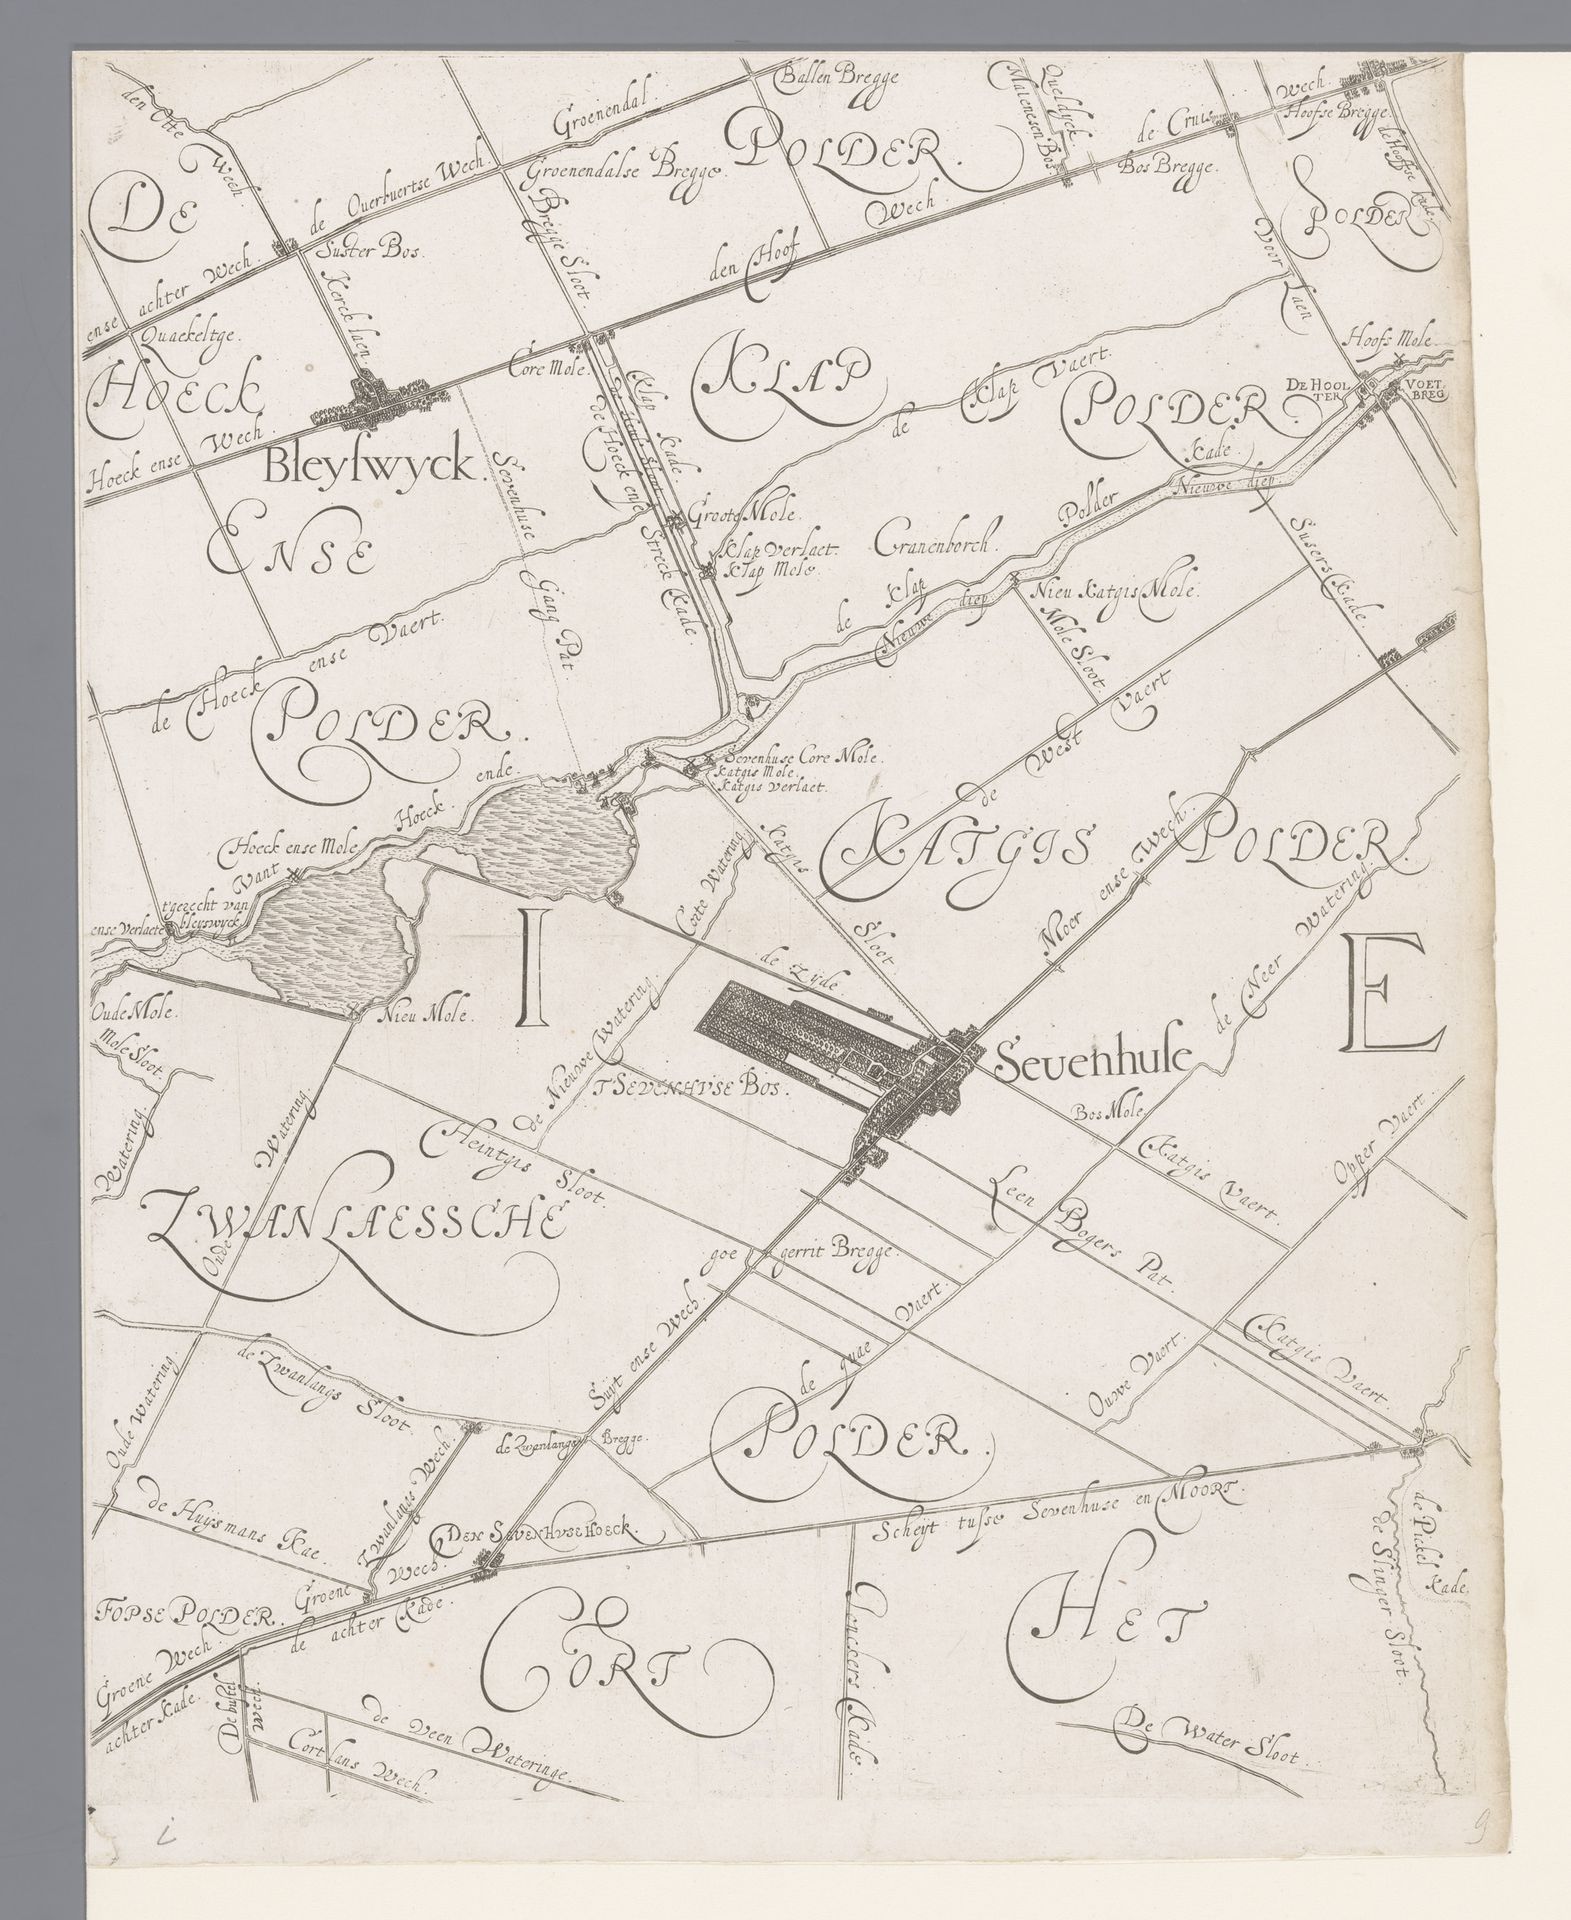 den Otte Wech.
DE
ense achter Wech.
de Ouerbuertse Wech.
Groenendal.
Ballen Bregge
Groenendalse Bregge.
POLDER.
Malenesen Bos.
Queldyck.
de Cruis
Wech.
Hoofse Bregge.
de Hoofse kade.
Bos Bregge.
POLDER
Suster Bos.
Kerck laen.
Bregge Sloot.
den Hoof
Wech.
Voor Laen
Quaekeltge.
HOECK
Hoeck ense Wech.
Bleyswyck.
Core Mole.
KLAP
de Klap Vaert.
POLDER.
Hoofs Mole.
DE HOOL
TER
VOET.
BREG
Klap kade.
de Hoeck ense Streck kade.
ENSE
Sevenhuse Gang Pat
Groote Mole.
Klap Verlaet.
Klap Mole.
Cranenborch.
de Klap Polder kade.
Nieuwe diep.
Nieuwe diep
Nieu Katgis Mole.
Mole Sloot.
Susers kade.
de Hoeck ense Vaert.
POLDER.
de West Vaert
Sevenhuse Core Mole.
Katgis Mole.
Katgis Verlaet.
Hoeck ende.
Hoeck ense Mole
Want
t'gerecht van
bleyswyck
ense Verlaete
Corte Watering
Katgis Sloot.
KATGIS POLDER.
Moer ense Wech.
de Neer Watering.
I
E
de Zyde.
Oude Mole.
Mole Sloot.
Nieu Mole.
de Nieuwe Watering.
T SEVENHVSE BOS.
Sevenhuse
Bos Mole.
Watering.
Oude Watering.
Heintgis Sloot.
Katgis Vaert.
Opper Vaert.
Leen Bogers Pat.
ZWANLAESSCHE
goe gerrit Bregge.
Suyt ense Wech.
de quae Vaert.
Ouwe Vaert.
Katgis Vaert.
de Zwanlangs Sloot.
Oude Watering.
Zwanlangs Wech.
de Zwanlangs Bregge.
POLDER.
de Huijsmans Kae.
DEN SEVENHVSE HOECK.
Scheyt tusse Sevenhuse en MOORT.
de Pickel kade.
de Slinger Sloot.
FOPSE POLDER.
Groene Wech.
de achter Kade.
Groene Wech.
achter Kade.
CORT
HET
Clenckers Kade.
De Water Sloot.
de Veen Wateringe.
Cort lans Wech.
i
9